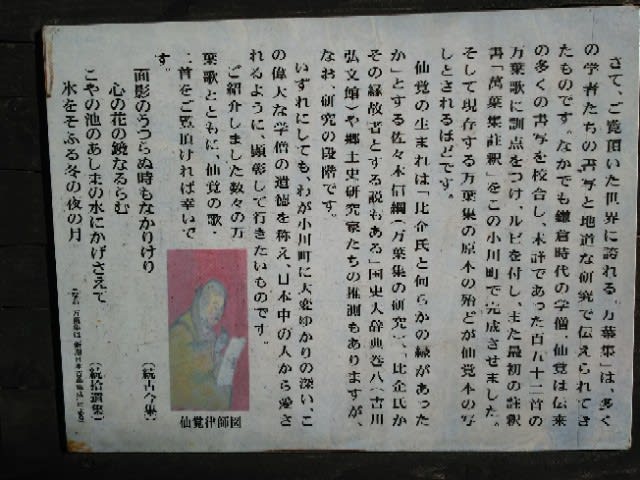 さて、ご覧頂いた世界に誇れる「万葉集」は、多く
の学者たちの書写と地道な研究で伝えられてき
たものです。なかでも鎌倉時代の学僧、仙覚は伝来
の多くの書写を校合し、未詳であった百五十二首の
万葉歌に訓点をつけ、ルビを付し、また最初の註釈
書「萬葉集註釈」をこの小川町で完成させました。
そして現存する万葉集の原本の殆どが仙覚本の写
しとされるほどです。
仙覚の生まれは「比企氏と何らかの縁があった
か」とする佐々木信綱(万葉集の研究)、比企氏か
その縁故者とする説もある」国史大辞典巻八(吉川
弘文館)や郷土史研究家たちの推測もありますが、
なお、研究の段階です。
いずれにしても、わが小川町に大変ゆかりの深い、こ
の偉大な学僧の遺徳を称え、日本中の人から愛さ
れるように、顕彰して行きたいものです。
ご紹介しました数々の万
葉歌とともに、仙覚の歌、
二首をご覧頂ければ幸いで
す。
面影のうつらぬ時もなかりけり
心の花の鏡なるらむ
(続古今集)
こやの池のあしまの水にかげさえて
氷をそふる冬の夜の月
(続拾遺集)
仙覚律師図